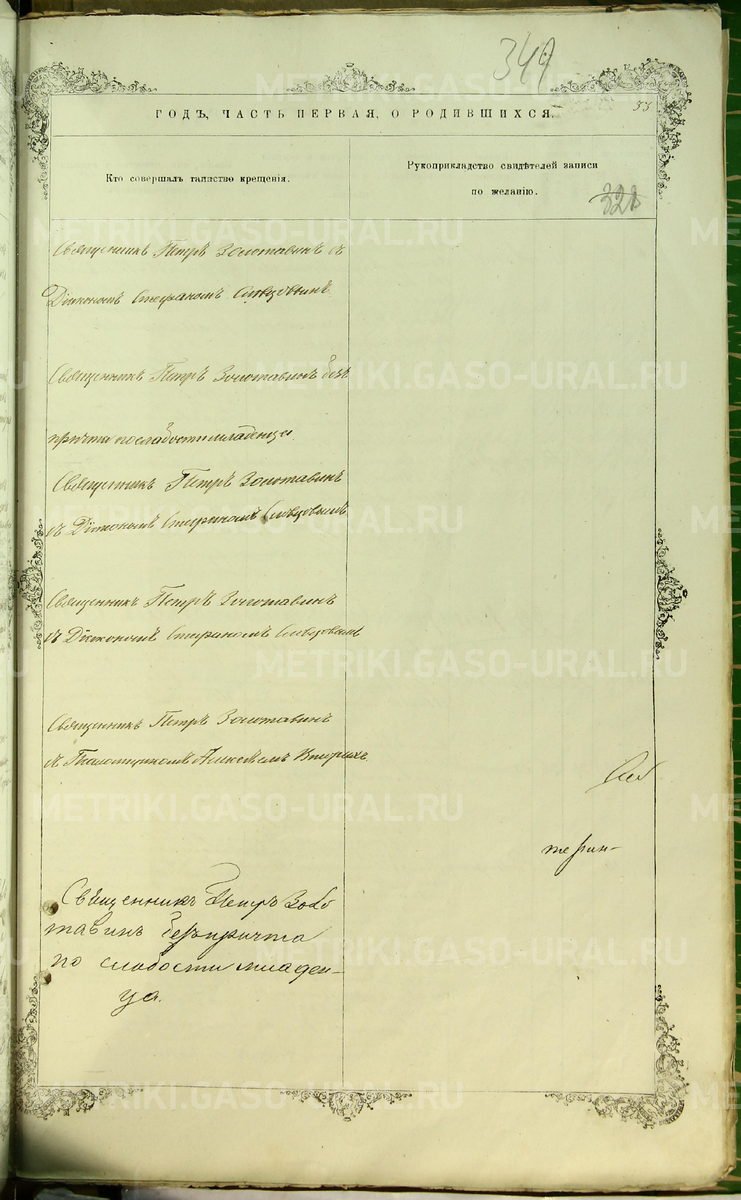 349
53
ГОДЪ, ЧАСТЬ ПЕРВАЯ, О РОДИВШИХСЯ.
Кто совершалъ таинство крещенія.
Рукоприкладство свидѣтелей записи
по желанію.
328
Священникъ Петръ Золотавинъ съ
Діакономъ Стефаномъ Словцовымъ.
Священникъ Петръ Золотавинъ безъ
причта по слабости младенца.
Священникъ Петръ Золотавинъ
съ Діакономъ Стефаномъ Словцовымъ
Священникъ Петръ Золотавинъ
съ Діакономъ Стефаномъ Словцовымъ
Священникъ Петръ Золотавинъ
съ Псаломщикомъ Алексѣемъ
Священникъ Петръ Золо
тавинъ безъ причта
по слабости младен-
ца.
METRIKI.GASO-URAL.RU